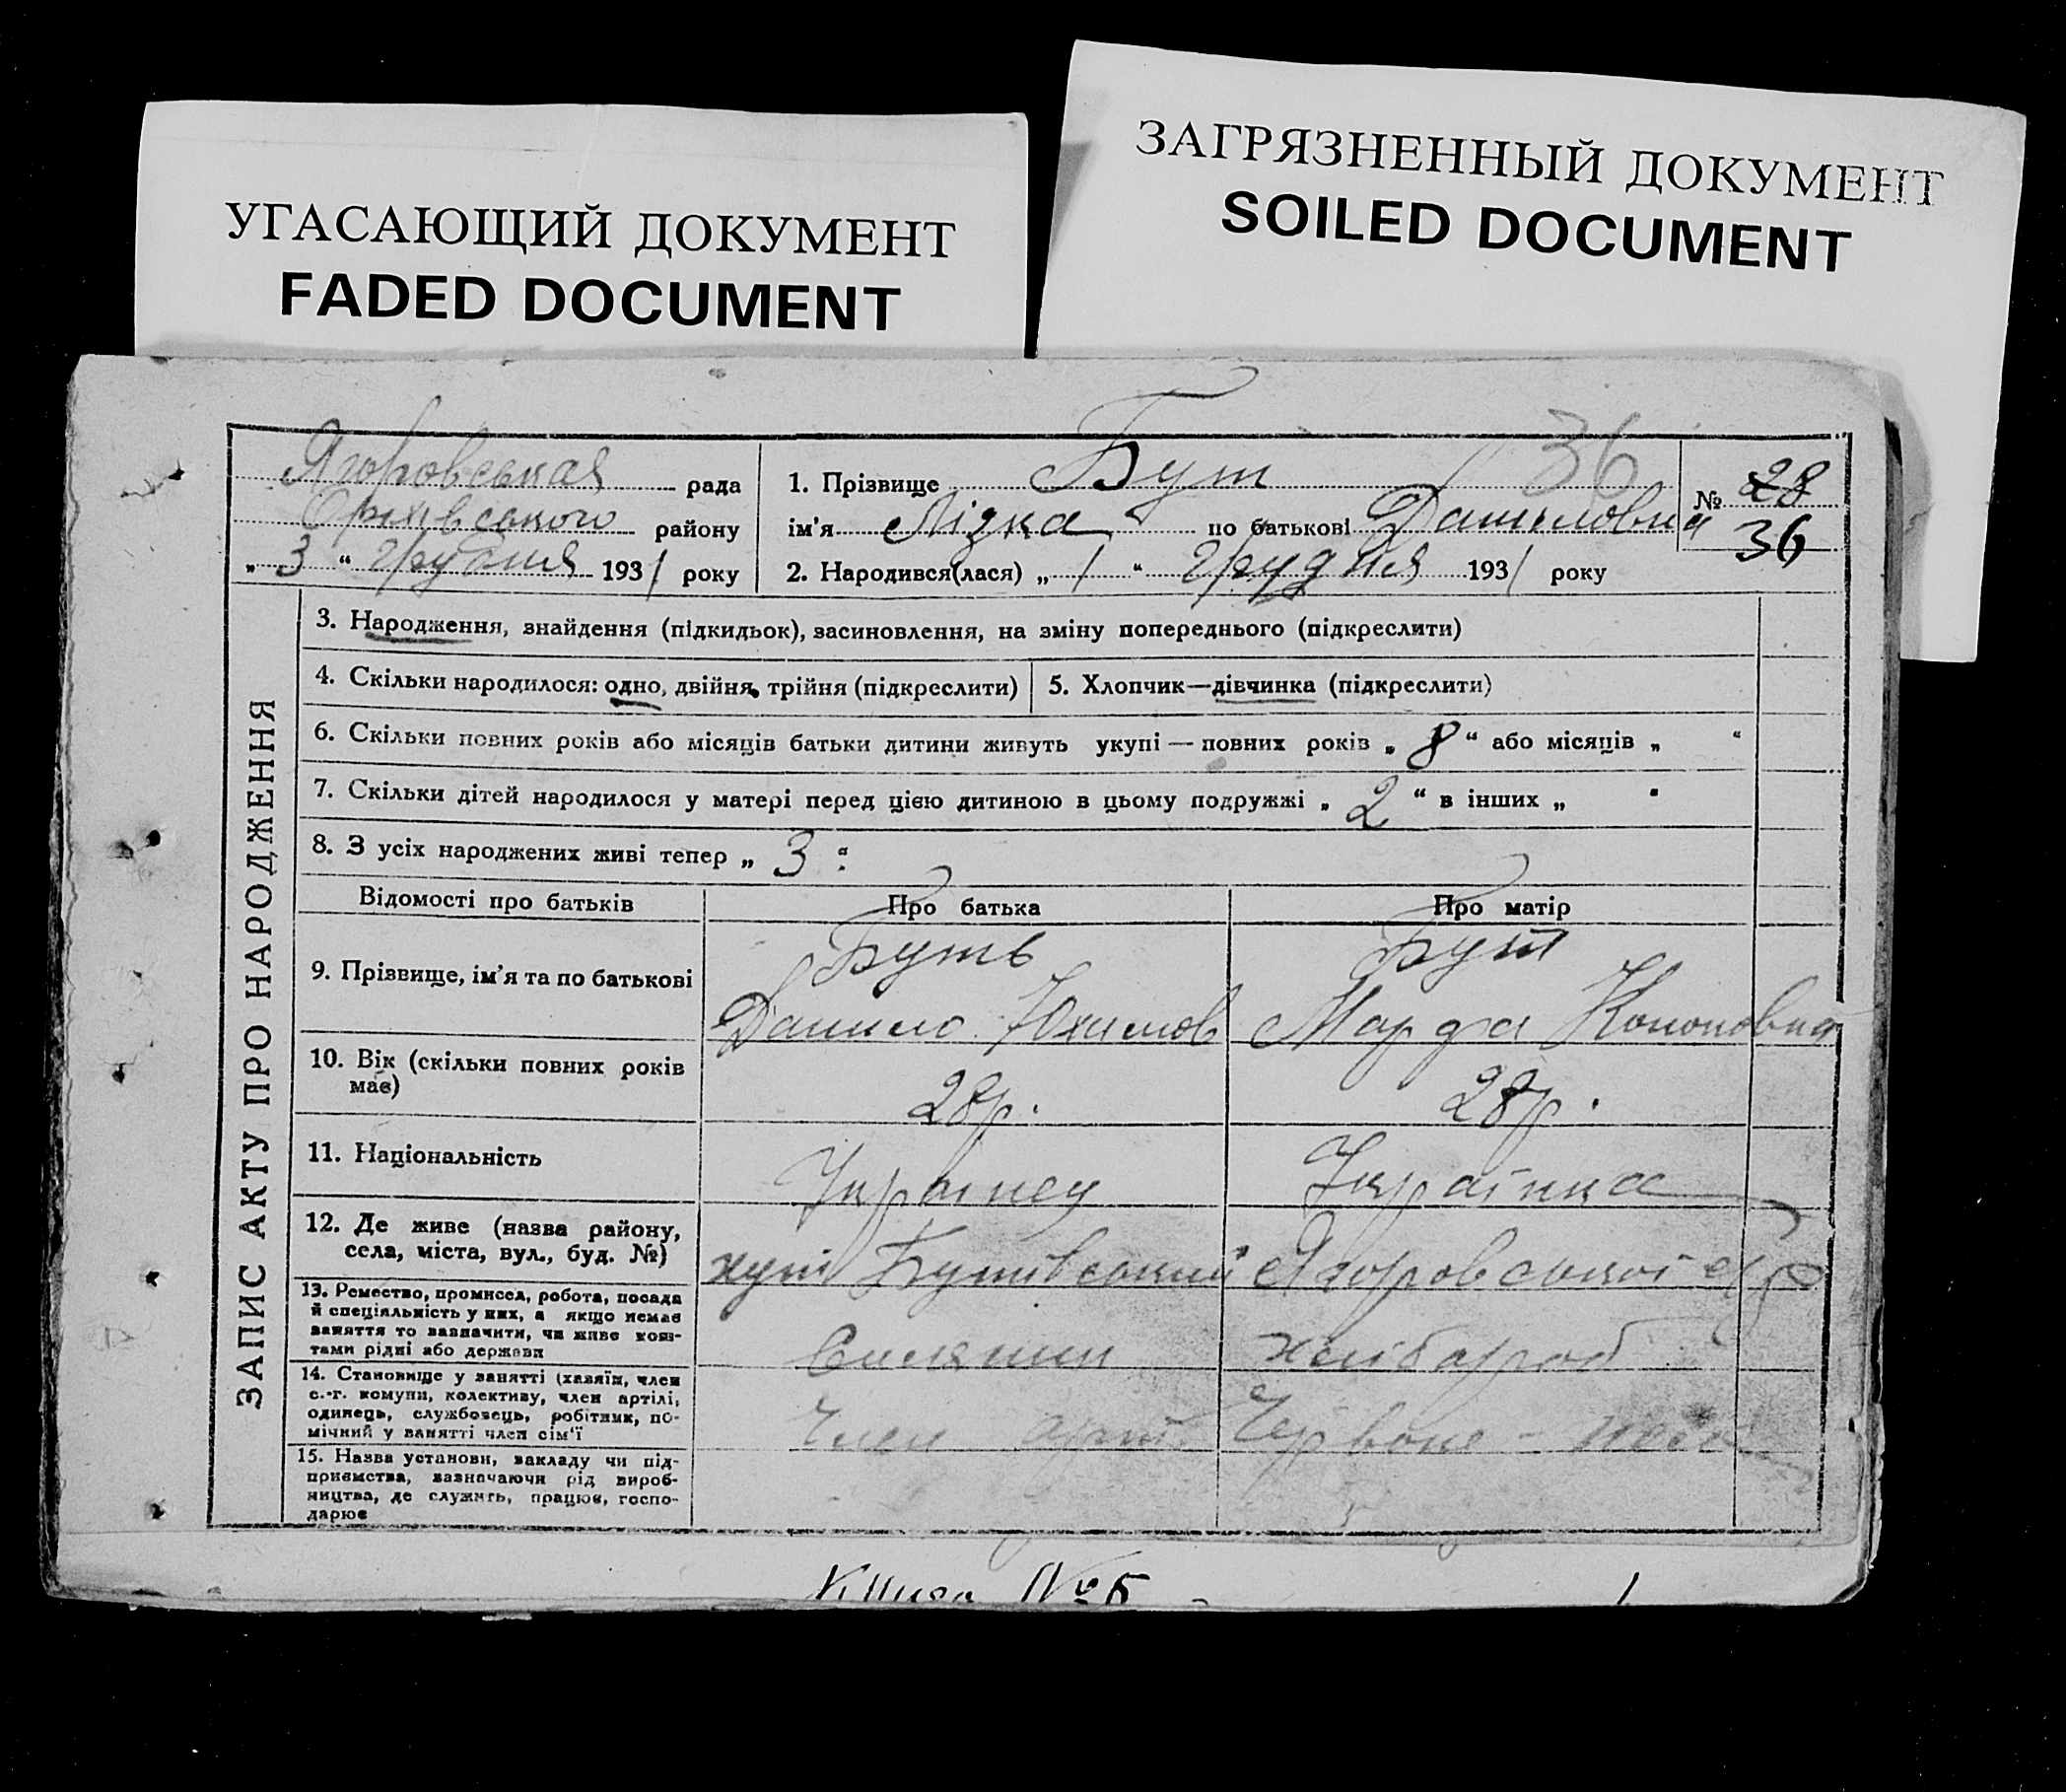 УГАСАЮЩИЙ ДОКУМЕНТ
FADED DOCUMENT
ЗАГРЯЗНЕННЫЙ ДОКУМЕНТ
SOILED DOCUMENT
рада
Оріхівського району
„ 3 “ Грудня 1931 року
1. Прізвище Бут 36
ім'я Лідка по батькові Даниловна
2. Народився(лася) „ 1 “ Грудня 1931 року
№ 28
36
ЗАПИС АКТУ ПРО НАРОДЖЕННЯ
3. Народження, знайдення (підкидьок), засиновлення, на зміну попереднього (підкреслити)
4. Скільки народилося: одно, двійня, трійня (підкреслити)
5. Хлопчик—дівчинка (підкреслити)
6. Скільки повних років або місяців батьки дитини живуть укупі — повних років „ 8 “ або місяців „ “
7. Скільки дітей народилося у матері перед цією дитиною в цьому подружжі „ 2 “ в інших „ “
8. З усіх народжених живі тепер „ 3 “
Відомості про батьків Про батька Про матір
9. Прізвище, ім'я та по батькові
Буть Бут
Данило Юхимов Марфа Кононовна
10. Вік (скільки повних років
має)
28р. 28р.
11. Національність
Українец Українка
12. Де живе (назва району,
села, міста, вул., буд. №)
хут Бутівський
13. Ремество, промисел, робота, посада
й спеціяльність у них, а якщо немає
заняття то зазначити, чи живе кош-
тами рідні або держави
Селянин хлібороб
14. Становище у занятті (хазяїн, член
с.-г. комуни, колективу, член артілі,
одинець, службовець, робітник, по-
мічний у занятті член сім'ї
Член арт. Червоне
15. Назва установи, закладу чи під-
приємства, зазначаючи рід вироб-
ництва, де служить, працює, госпо-
дарює
Книга № 5